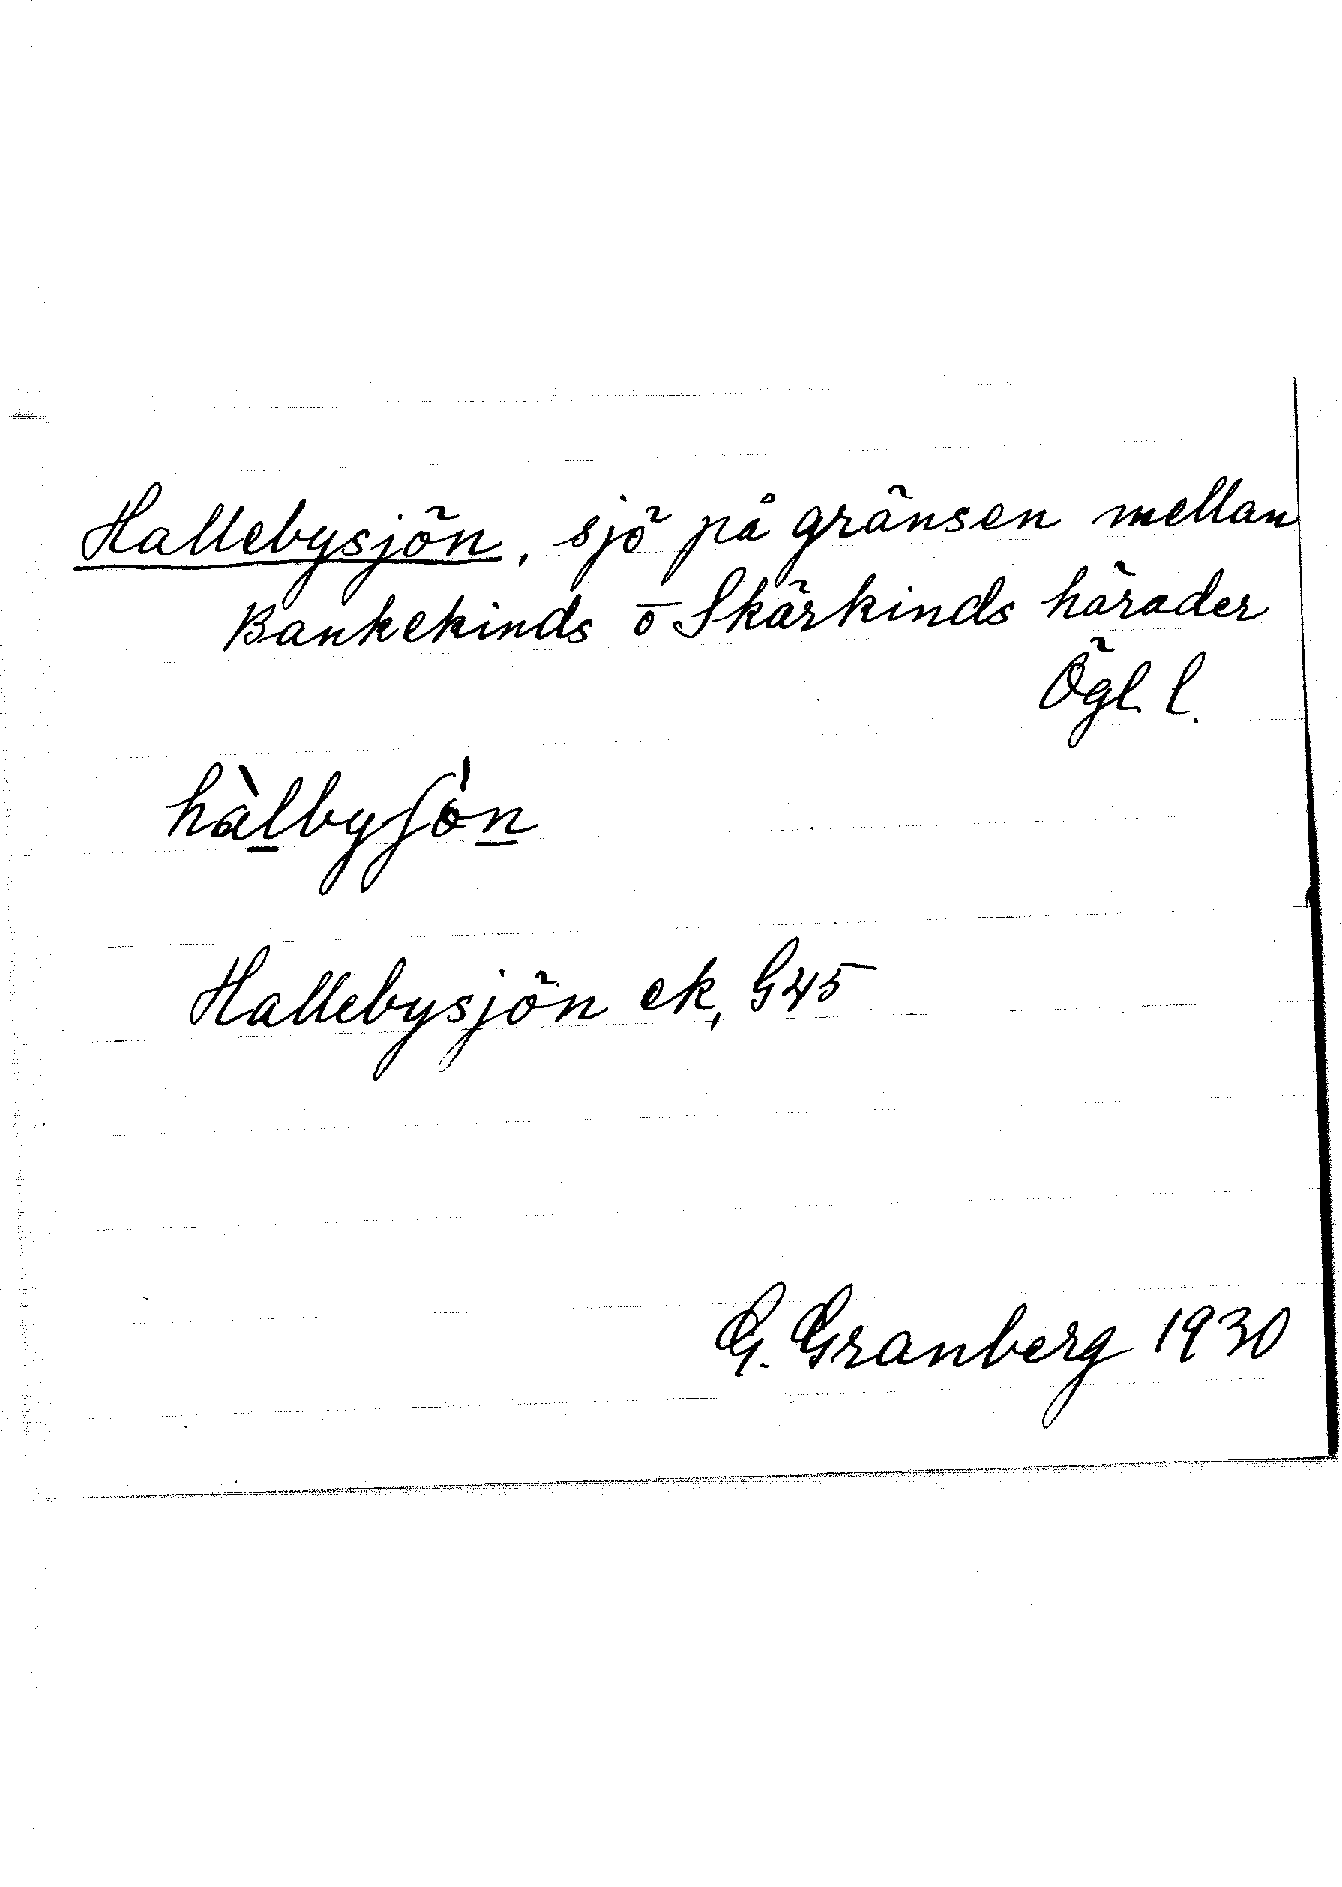 Hallebysjön, sjö på gränsen mellan
Bankekinds o Skärkinds härader
Ögl. l.
hàlbyʃón
Hallebysjön ek, G45
G. Granberg 1930